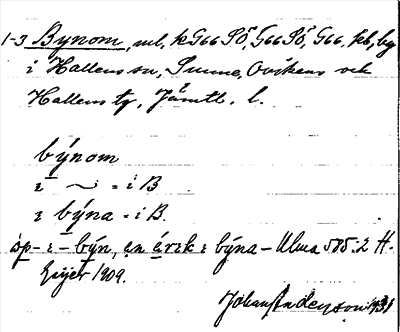 1-3 Bynom, ml, k G66 SÖ, G66 SÖ, G66, kb, by
i Hallens sn, Sunne, Ovikens o
Hallens tg, Jämtl. l.
by̌nom
ɛ ~ = i B
ɛ by̌na = i B.
óp- ɛ - by̌n, an árɛk ɛ by̌na - Ulma 585:2 H.
Geijer 1909.
Johan Anderson 1931